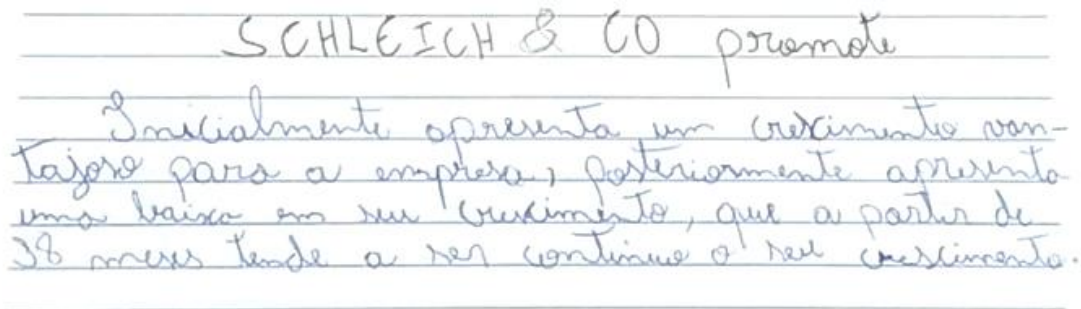 SCHLEICH & CO promote
Inicialmente apresenta um crescimento van-
tajoso para a empresa, posteriormente apresenta
uma baixa em seu crescimento, que a partir de
38 meses tende a ser continuo o seu crescimento.